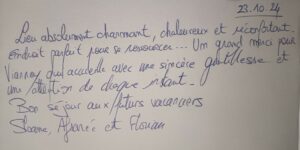 23.10.24
Lieu absolument charmant, chaleureux et réconfortant,
endroit parfait pour se ressourcer... Un grand merci pour
qui accueille avec une sincère gentillesse et
une attention de chaque instant.
Bon séjour aux futurs vacanciers
et